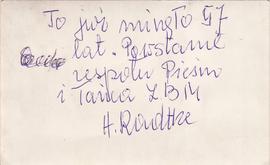 To już minęło 57
lat. Powstanie
zespołu Pieśni
i Tańca ZBM
H. Radtke